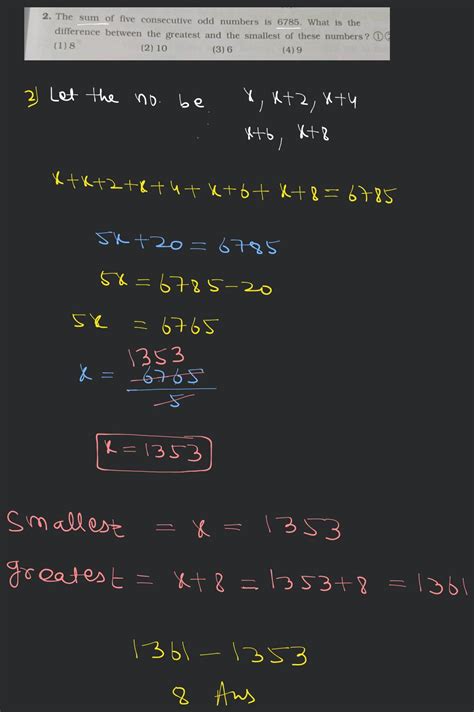 2. The sum of five consecutive odd numbers is 6785. What is the
difference between the greatest and the smallest of these numbers?
(1) 8 (2) 10 (3) 6 (4) 9
2) Let the no. be x, x+2, x+4
x+6, x+8
x+x+2+x+4+x+6+x+8=6785
5x+20=6785
5x=6785-20
5x = 6765
1353
x = 6765/5
x=1353
Smallest = x = 1353
greatest = x+8 = 1353+8 = 1361
1361-1353
8 Ans